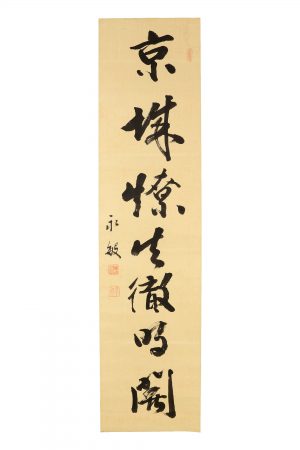 京城燎火徹明開
永敏